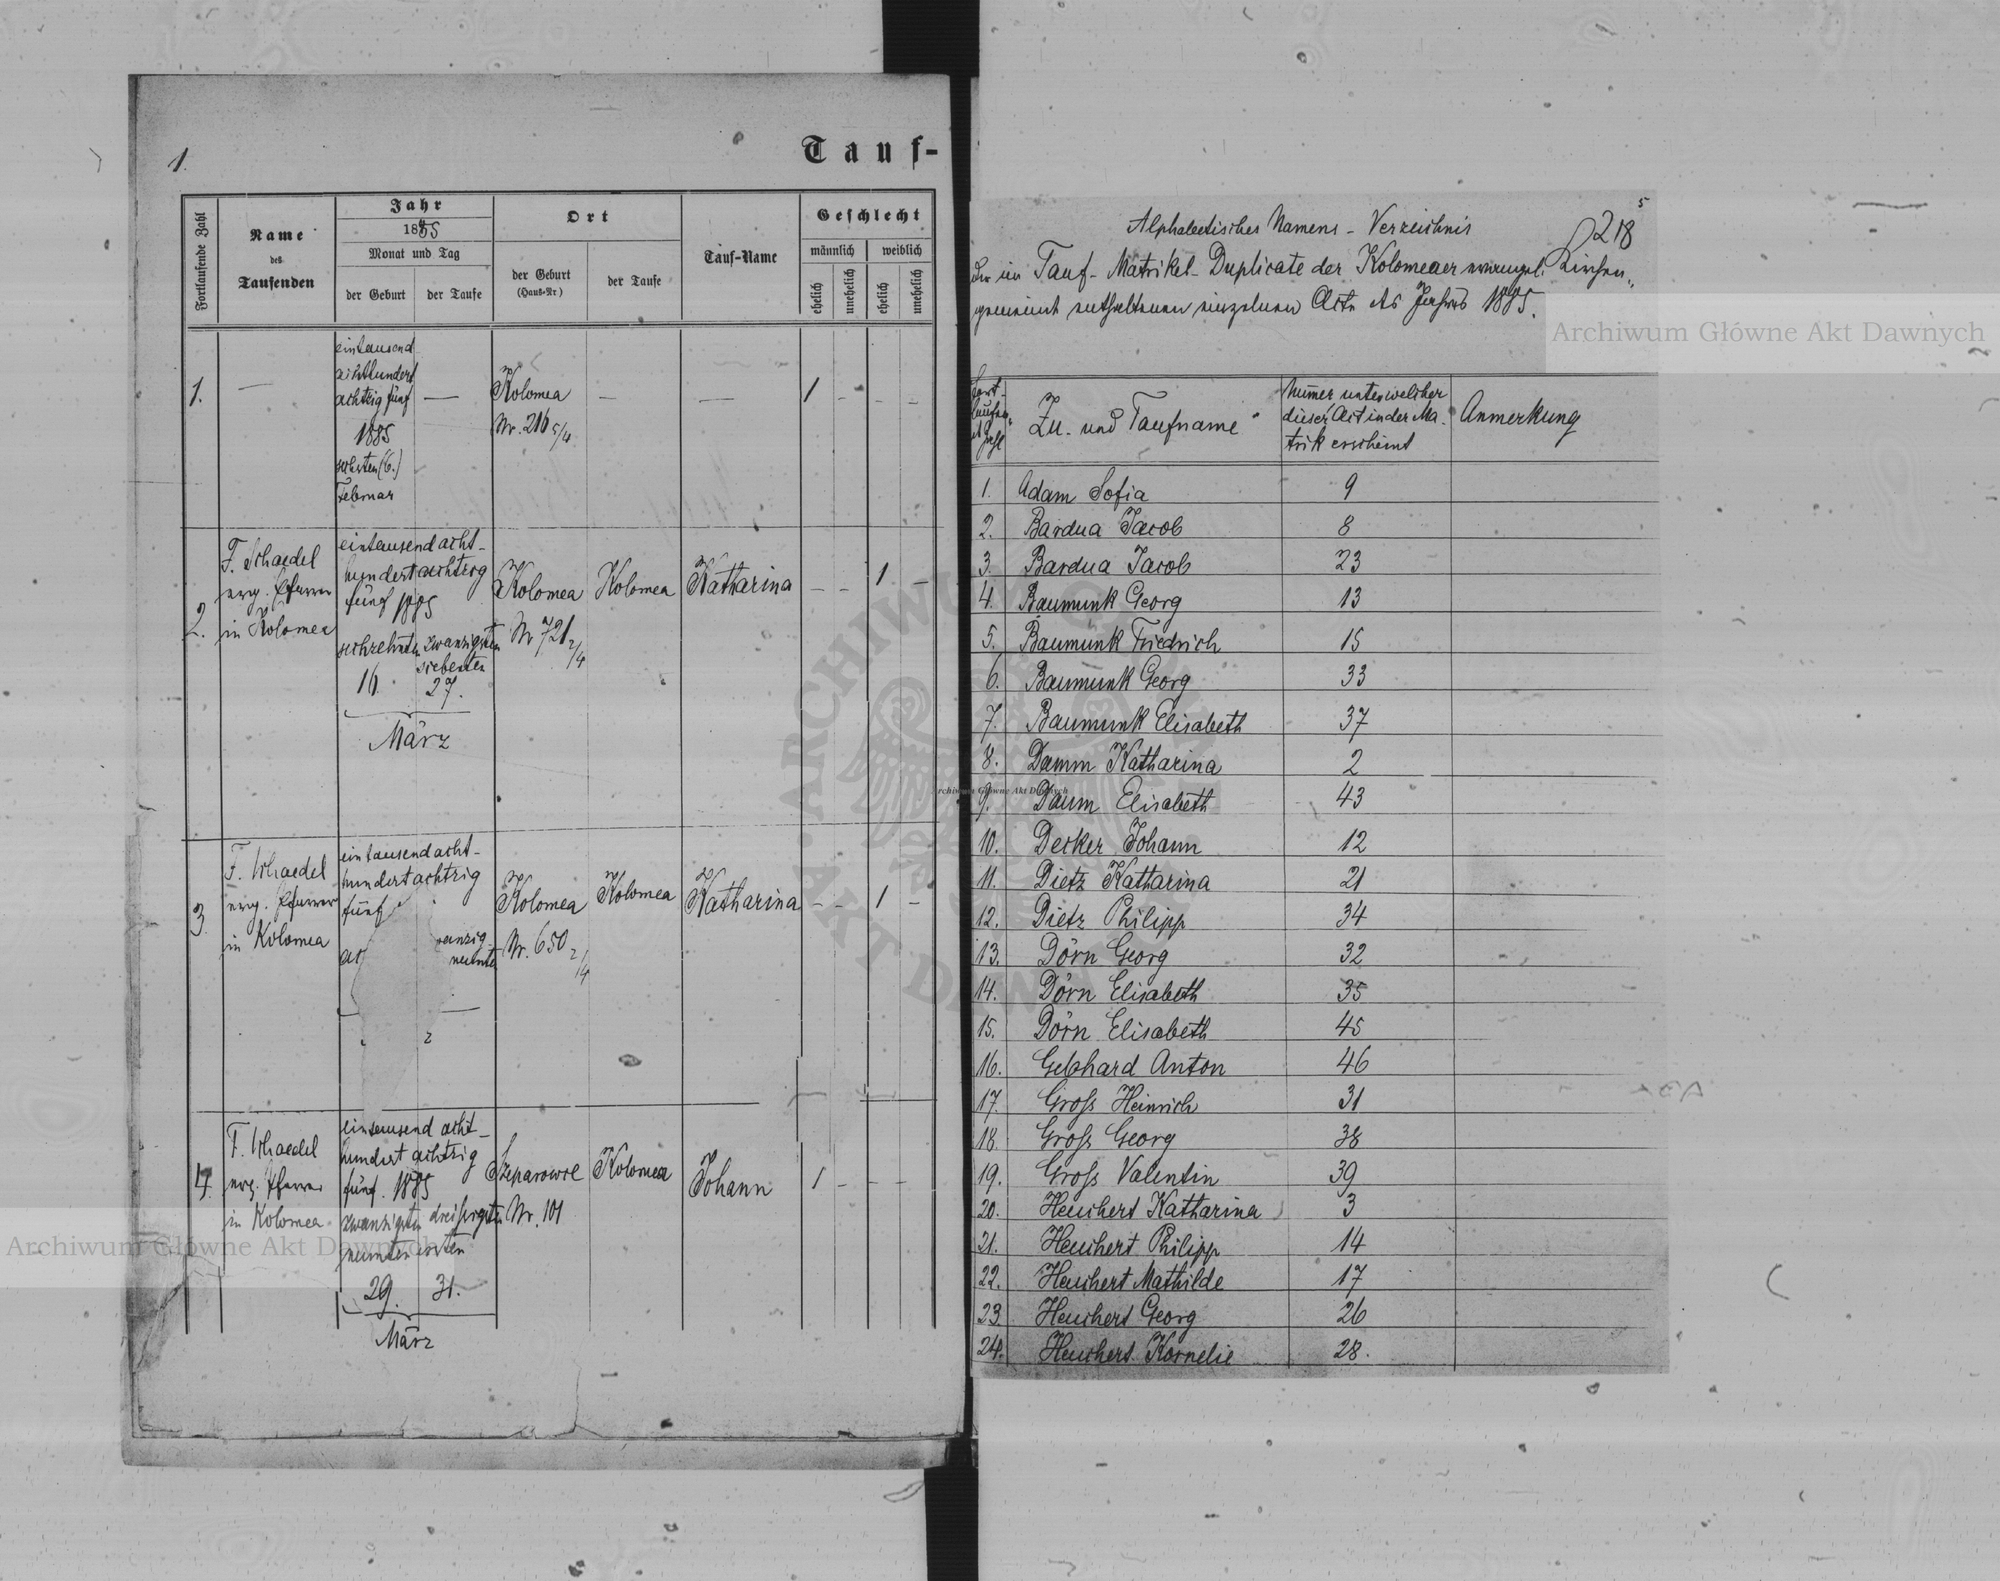 1.
Tauf-
Fortlaufende Zahl
Name
des
Taufenden
Jahr
1885
Monat und Tag
der Geburt
der Taufe
Ort
der Geburt
(Haus-Nr)
der Taufe
Tauf-Name
Geschlecht
männlich
weiblich
ehelich
unehelich
ehelich
unehelich
1.
—
eintausend
achthundert
achtzig fünf
1885
sechsten (6.)
Februar
—
Kolomea
Nr. 216 5/4
—
—
1 - - -
2.
F. Schaedel
evg. Pfarrer
in Kolomea
eintausend acht-
hundert achtzig
fünf 1885
sechzehnten zwanzigsten
siebenten
16. 27.
März
Kolomea
Nr 721 2/4
Kolomea
Katharina
- - 1 -
3
F. Schaedel
evg. Pfarrer
in Kolomea
eintausend acht-
hundert achtzig
fünf
neunten
Kolomea
Nr. 650 2/4
Kolomea
Katharina
- - 1 -
4
F. Schaedel
evg. Pfarrer
in Kolomea
eintausend acht-
hundert achtzig
fünf. 1885
zwanzigsten dreissigsten
neunten ersten
29. 31.
März
Szeparowce
Nr. 101
Kolomea
Johann
1 - - -
5
218
Alphabetisches Namens-Verzeichnis
der im Tauf-Matrikel-Duplicate der Kolomeaer evangel. Kirchen-
gemeinde enthaltenen einzelnen Acte des Jahres 1885.
Fort-
laufen-
de Zahl
Zu- und Taufname
Numer unter welcher
dieser Act in der Ma-
trik erscheint
Anmerkung
1. Adam Sofia 9
2. Bardua Jacob 8
3. Bardua Jacob 23
4. Baumunk Georg 13
5. Baumunk Friedrich 15
6. Baumunk Georg 33
7. Baumunk Elisabeth 37
8. Damm Katharina 2
9. Daum Elisabeth 43
10. Decker Johann 12
11. Dietz Katharina 21
12. Dietz Philipp 34
13. Dörn Georg 32
14. Dörn Elisabeth 35
15. Dörn Elisabeth 45
16. Gebhard Anton 46
17. Groß Heinrich 31
18. Groß Georg 38
19. Groß Valentin 39
20. Heuchert Katharina 3
21. Heuchert Philipp 14
22. Heuchert Mathilde 17
23. Heuchert Georg 26
24. Heuchert Kornelie 28.
Archiwum Główne Akt Dawnych
Archiwum Główne Akt Dawnych
Archiwum Główne Akt Dawnych